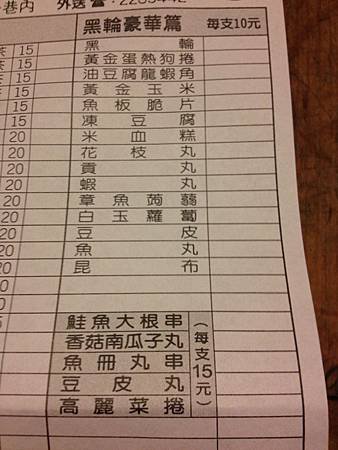 巷內 外送
黑輪豪華篇 每支10元
15 黑輪
15 黃金蛋熱狗捲
15 油豆腐龍蝦角
15 黃金玉米
15 魚板脆片
15 凍豆腐
20 米血糕
20 花枝丸
20 貢丸
20 蝦丸
20 章魚蒟蒻
20 白玉蘿蔔
20 豆皮
20 魚丸
20 昆布
鮭魚大根串
香菇南瓜子丸
魚冊丸串
豆皮丸
高麗菜捲
(每支15元)